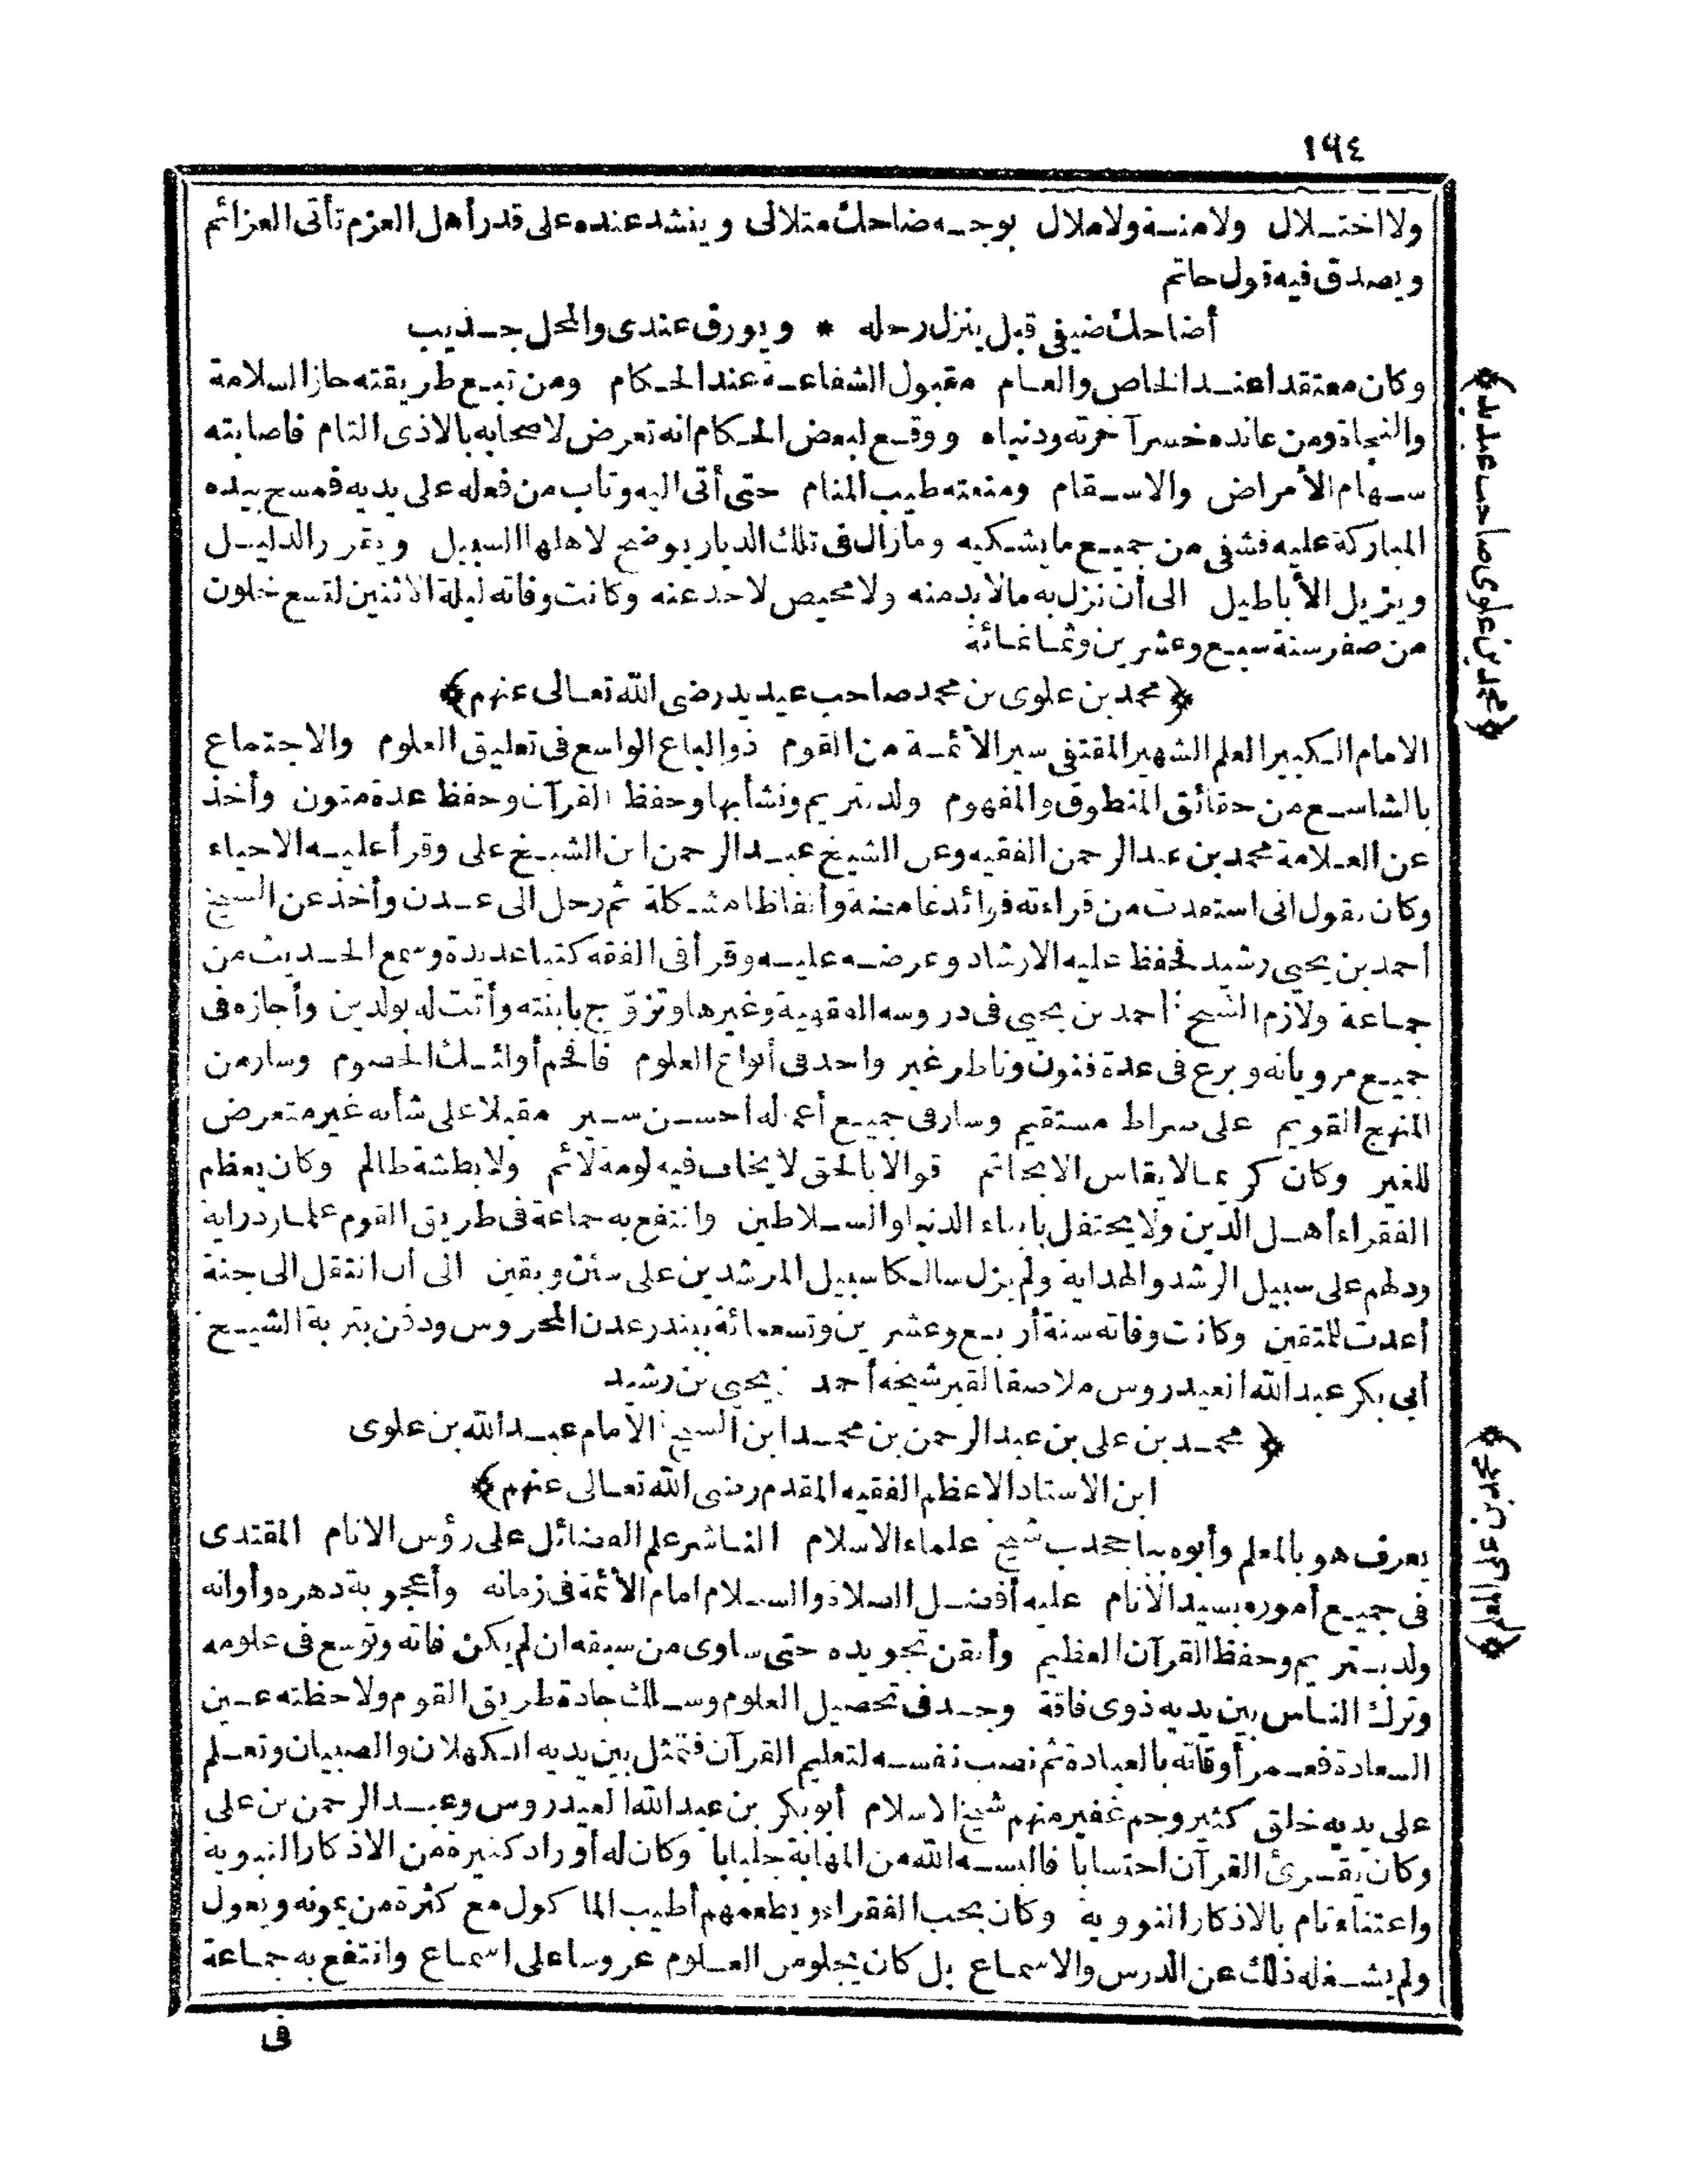 ١٩٤
ولا اختلال ولا منة ولا ملال بوجه ضاحك متلالى وينشد عنده على قدر أهل العزم تأتى العزائم
ويصدق فيه قول حاتم
أضاحك ضيفى قبل ينزل رحله * ويورق عندى والمحل جذيب
وكان معتقدا عند الخاص والعام مقبول الشفاعة عند الحكام ومن تبع طريقته حاز السلامة
والنجاة ومن عانده خسر آخرته ودنياه ووقع لبعض الحكام انه تعرض لاصحابه بالاذى التام فاصابته
سهام الأمراض والاسقام ومنعته طيب المنام حتى أتى اليه وتاب من فعله على يديه فمسح بيده
المباركة عليه فشفى من جميع ما يشكيه ومازال فى تلك الديار يوضح لاهلها السبيل ويقرر الدليل
ويزيل الأباطيل الى أن نزل به ما لا بد منه ولا محيص لاحد عنه وكانت وفاته ليلة الاثنين لتسع خلون
من صفر سنة سبع وعشرين وثمانمائة
﴿محمد بن علوى بن محمد صاحب عيديد رضى الله تعالى عنهم﴾
الامام الكبير العلم الشهير المقتفى سير الأئمة من القوم ذو الباع الواسع فى تعليق العلوم والاجتماع
بالشاسع من حقائق المنطوق والمفهوم ولد بتريم ونشأ بها وحفظ القرآن وحفظ عدة متون وأخذ
عن العلامة محمد بن عبد الرحمن الفقيه وعن الشيخ عبد الرحمن ابن الشيخ على وقرأ عليه الاحياء
وكان يقول انى استفدت من قراءته فوائد غامضة وألفاظا مشكلة ثم رحل الى عدن وأخذ عن الشيخ
أحمد بن يحيى رشيد فحفظ عليه الارشاد وعرضه عليه وقرأ فى الفقه كتبا عديدة وسمع الحديث من
جماعة ولازم الشيخ أحمد بن يحيى فى دروسه الفقهية وغيرها وتزوّج بابنته وأتت له بولدين وأجازه فى
جميع مروياته وبرع فى عدة فنون وناظر غير واحد فى أنواع العلوم فافحم أوائك الخصوم وسار من
المنهج القويم على سراط مستقيم وسار فى جميع أعماله احسن سير مقبلا على شأنه غير متعرض
للغير وكان كريما لا يقاس الا بحاتم قوالا بالحق لا يخاف فيه لومة لائم ولا بطشة ظالم وكان يعظم
الفقراء أهل الدين ولا يحتفل بابناء الدنيا والسلاطين وانتفع به جماعة فى طريق القوم علما ودراية
ودلهم على سبيل الرشد والهداية ولم يزل سالكا سبيل المرشدين على سنن ويقين الى أن انتقل الى جنة
أعدت للمتقين وكانت وفاته سنة أربع وعشرين وتسعمائة ببندر عدن المحروس ودفن بتربة الشيخ
أبى بكر عبد الله العيدروس ملاصقا لقبر شيخه أحمد بن يحيى بن رشيد
﴿محمد بن على بن عبد الرحمن بن محمد ابن الشيخ الامام عبد الله بن علوى
ابن الاستاذ الاعظم الفقيه المقدم رضى الله تعالى عنهم﴾
يعرف هو بالمعلم وأبوه بباجحدب شيخ علماء الاسلام الناشر علم الفضائل على رؤس الانام المقتدى
فى جميع أموره بسيد الانام عليه أفضل الصلاة والسلام امام الأئمة فى زمانه وأعجوبة دهره وأوانه
ولد بتريم وحفظ القرآن العظيم وأتقن تجويده حتى ساوى من سبقه ان لم يكن فاته وتوسع فى علومه
وترك الناس بين يديه ذوى فاقة وجد فى تحصيل العلوم وسلك جادة طريق القوم ولاحظته عين
السعادة فعمر أوقاته بالعبادة ثم نصب نفسه لتعليم القرآن فتمثل بين يديه الكهلان والصبيان وتعلم
على يديه خلق كثير وجم غفير منهم شيخ الاسلام أبو بكر بن عبد الله العيدروس وعبد الرحمن بن على
وكان يقرئ القرآن احتسابا فالبسه الله من المهابة جلبابا وكان له أوراد كثيرة من الاذكار النبوية
واعتناء تام بالاذكار النووية وكان يحب الفقراء ويطعمهم أطيب الماكول مع كثرة من يمونه ويعول
ولم يشغله ذلك عن الدرس والاسماع بل كان يجلو من العلوم عروسا على اسماع وانتفع به جماعة
فى
﴿محمد بن علوى صاحب عيديد﴾